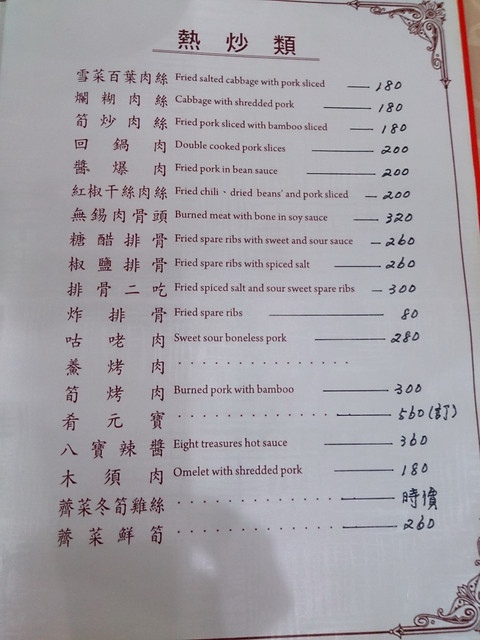 熱炒類
雪菜百葉肉絲 Fried salted cabbage with pork sliced —— 180
爛糊肉絲 Cabbage with shredded pork —— 180
筍炒肉絲 Fried pork sliced with bamboo sliced —— 180
回鍋肉 Double cooked pork slices —— 200
醬爆肉 Fried pork in bean sauce —— 200
紅椒干絲肉絲 Fried chili、dried beans' and pork sliced — 200
無錫肉骨頭 Burned meat with bone in soy sauce —— 320
糖醋排骨 Fried spare ribs with sweet and sour sauce — 260
椒鹽排骨 Fried spare ribs with spiced salt —— 260
排骨二吃 Fried spiced salt and sour sweet spare ribs — 300
炸排骨 Fried spare ribs —— 80
咕咾肉 Sweet sour boneless pork —— 280
鯗烤肉 ················
筍烤肉 Burned pork with bamboo —— 300
肴元寶 ················ —— 560(訂)
八寶辣醬 Eight treasures hot sauce —— 360
木須肉 Omelet with shredded pork —— 180
薺菜冬筍雞絲 ················ —— 時價
薺菜鮮筍 ················ —— 260